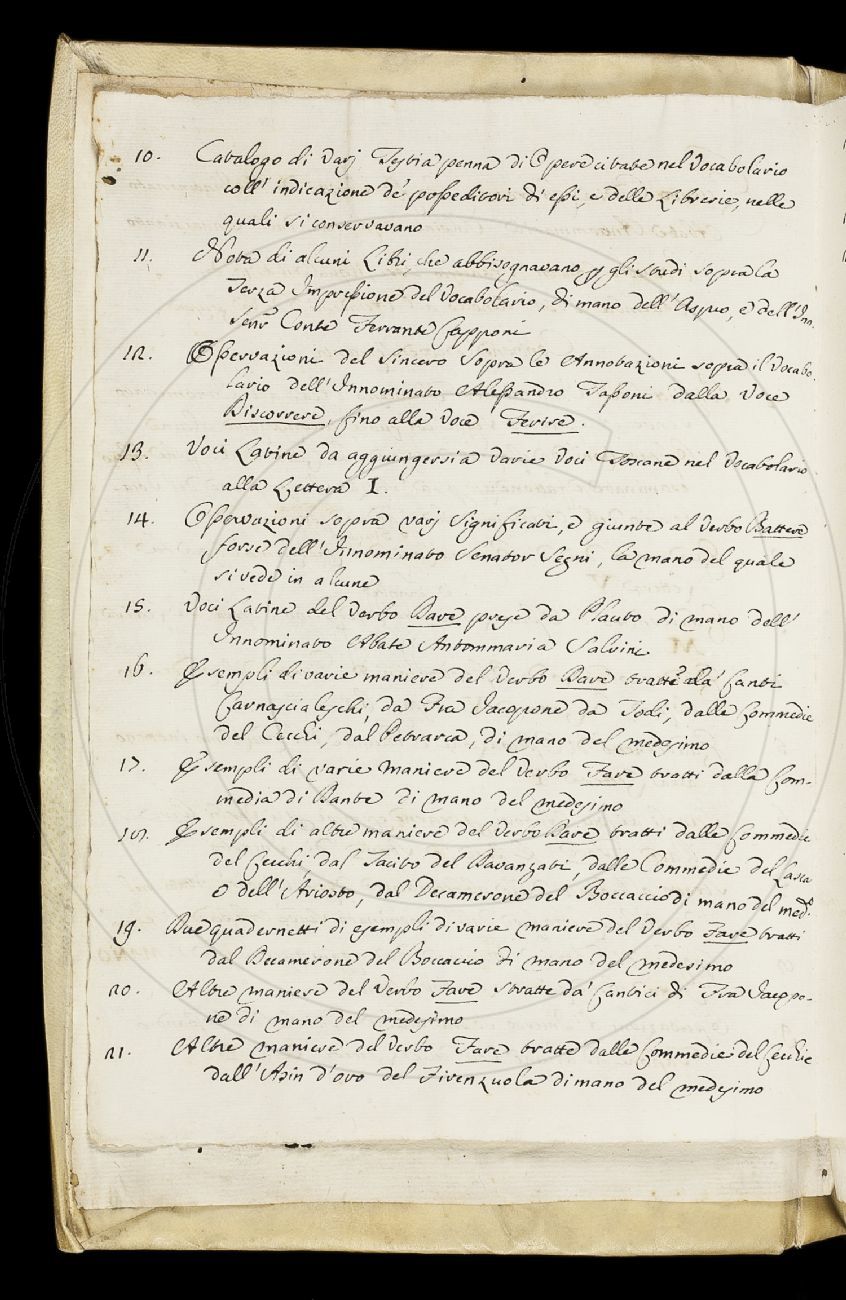 10. Catalogo di varj Testi a penna di Opere citate nel Vocabolario
coll' indicazione de' posseditori di essi, e delle Librerie, nelle
quali si conservavano
11. Nota di alcuni Libri, che abbisognavano p gli studi sopra la
Terza Impressione del Vocabolario, di mano dell' Aspro, e dell' Inn.
Senr Conte Ferrante Capponi
12. Osservazioni del Sincero sopra le Annotazioni sopra il Vocabo-
lario dell' Innominato Alessandro Tassoni dalla Voce
Discorrere, fino alla Voce Ferire.
13. Voci Latine da aggiungersi a varie Voci Toscane nel Vocabolario
alla Lettera I.
14. Osservazioni sopra varj significati, e giunte al Verbo Battere
forse dell' Innominato Senator Segni, la mano del quale
si vede in alcune
15. Voci Latine del Verbo Dare prese da Plauto di mano dell'
Innominato Abate Antommaria Salvini
16. Esempli di varie maniere del Verbo Dare tratte da' Canti
Carnascialeschi, da Fra Jacopone da Todi, dalle Commedie
del Cecchi, dal Petrarca, di mano del medesimo
17. Esempli di varie maniere del Verbo Fare tratti dalla Com-
media di Dante di mano del medesimo
18. Esempli di altre maniere del Verbo Dare tratti dalle Commedie
del Cecchi, dal Tacito del Davanzati, dalle Commedie del Lasca
e dell' Ariosto, dal Decamerone del Boccaccio di mano del medo.
19. Due quadernetti di esempli di varie maniere del Verbo Fare tratti
dal Decamerone del Boccaccio di mano del medesimo
20. Altre maniere del Verbo Fare tratte da' Cantici di Fra Jacopo-
ne di mano del medesimo
21. Altre maniere del Verbo Fare tratte dalle Commedie del Cecchi e
dall' Asin d'oro del Firenzuola di mano del medesimo